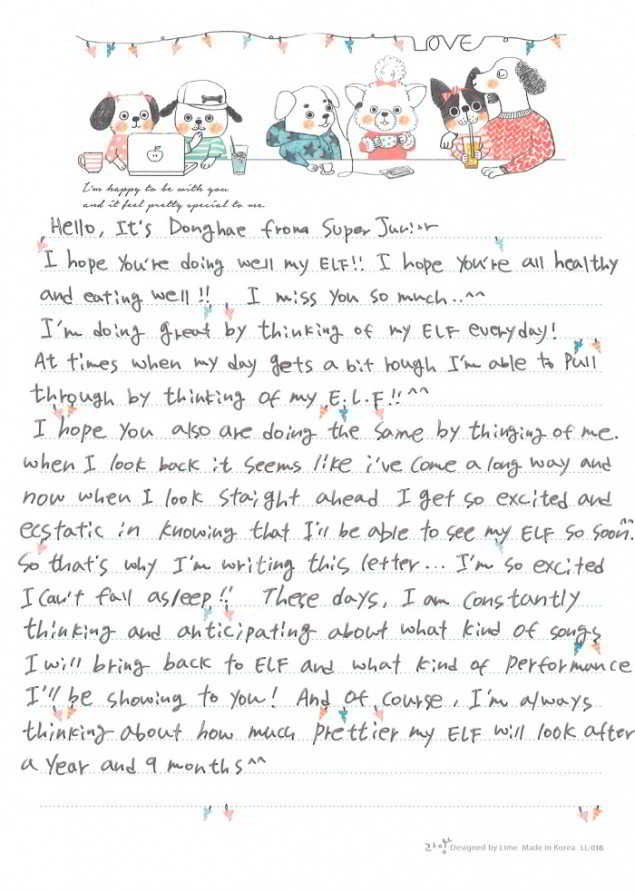 LOVE
I'm happy to be with you
and it feel pretty special to me.
Hello, It's Donghae from Super Junior
I hope you're doing well my ELF!! I hope you're all healthy
and eating well!! I miss you so much..^^
I'm doing great by thinking of my ELF everyday!
At times when my day gets a bit rough I'm able to pull
through by thinking of my E.L.F!!^^
I hope you also are doing the same by thinging of me.
when I look back it seems like i've come a long way and
now when I look staight ahead I get so excited and
ecstatic in knowing that I'll be able to see my ELF so soon^^.
So that's why I'm writing this letter... I'm so excited
I can't fall asleep!! These days, I am constantly
thinking and anticipating about what kind of songs
I will bring back to ELF and what kind of performance
I'll be showing to you! And Of course, I'm always
thinking about how much prettier my ELF will look after
a year and 9 months^^
라임 Designed by Lime Made in Korea LL-016